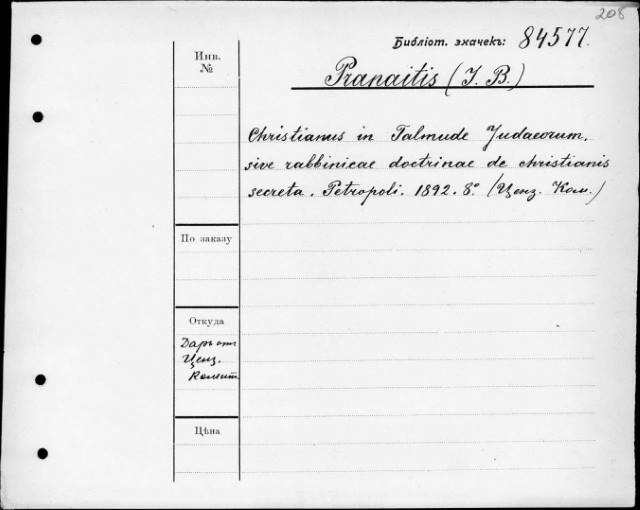 208
Библіот. значекъ: 84577.
Инв.
№
Pranaitis (I. B.)
Christianus in Talmude Judaeorum,
sive rabbinicae doctrinae de christianis
secreta. Petropoli. 1892. 8.° (Ценз. Ком.)
По заказу
Откуда
Даръ отъ
Ценз.
Комит.
Цѣна